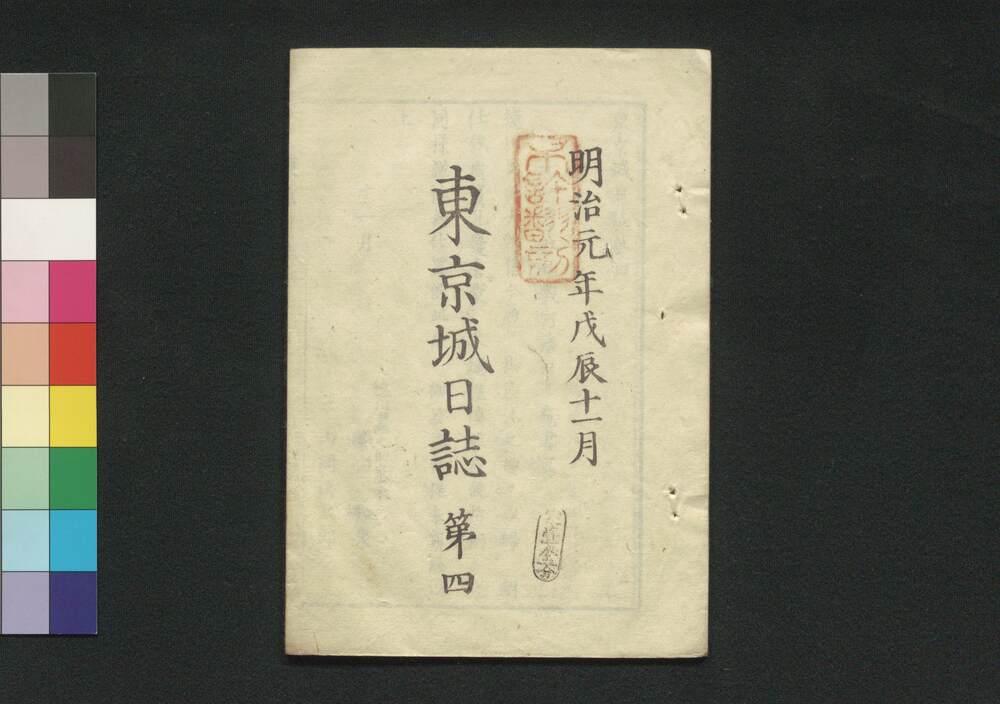 明治元年戊辰十一月
東京城日誌 第四